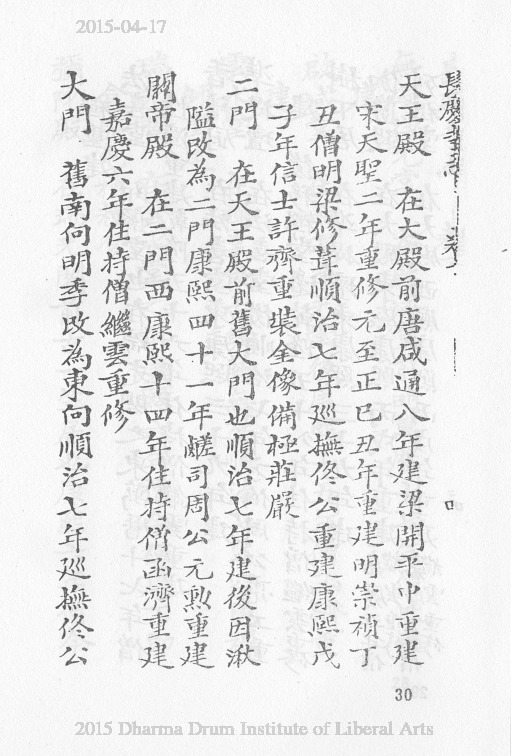 2015-04-17
長慶寺志
天王殿 在大殿前唐咸通八年建梁開平中重建
宋天聖二年重修元至正巳丑年重建明崇禎丁
丑僧明梁修葺順治七年廵撫佟公重建康熙戊
子年信士許齊重裝金像備極莊嚴
二門 在天王殿前舊大門也順治七年建後因湫
隘改為二門康熙四十一年鹺司周公元勲重建
關帝殿 在二門西康熙十四年住持僧函濟重建
嘉慶六年住持僧繼雲重修
大門 舊南向明季改為東向順治七年廵撫佟公
30
2015 Dharma Drum Institute of Liberal Arts